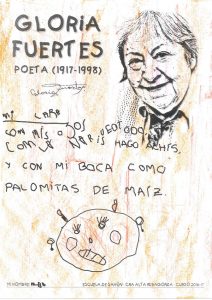 GLORIA
FUERTES
POETA (1917-1998)
Gloria Fuertes
MI CARA
CON MIS OJOS LO VEO TODO,
CON LA NARIS HAGO ACHIS,
Y CON MI BOCA COMO
PALOMITAS DE MAIZ.
MI NOMBRE
ESCUELA DE SAHÚN. CRA ALTA RIBAGORZA. CURSO 2016-17